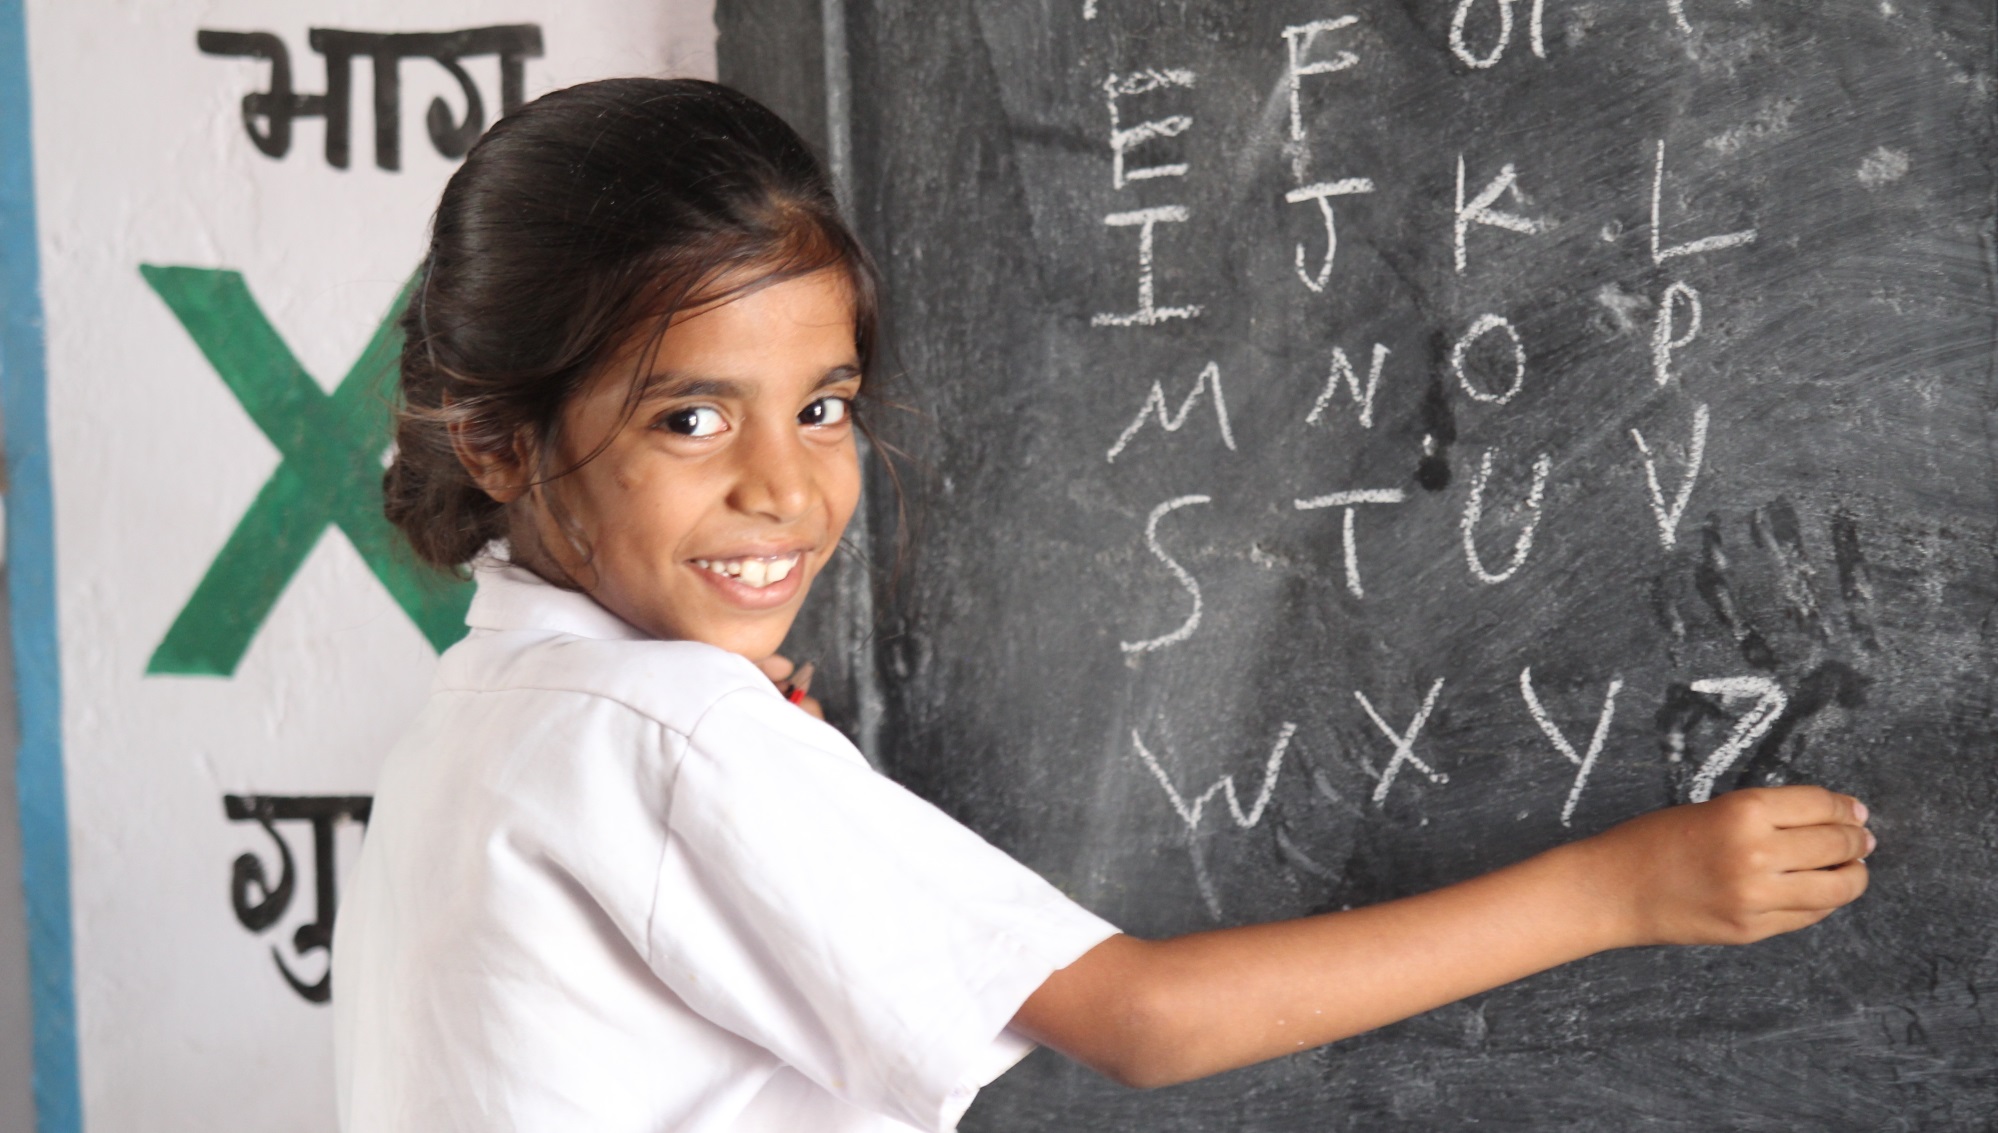 भाग
×
E F
I J K L
M N O P
S T U V
W X Y Z